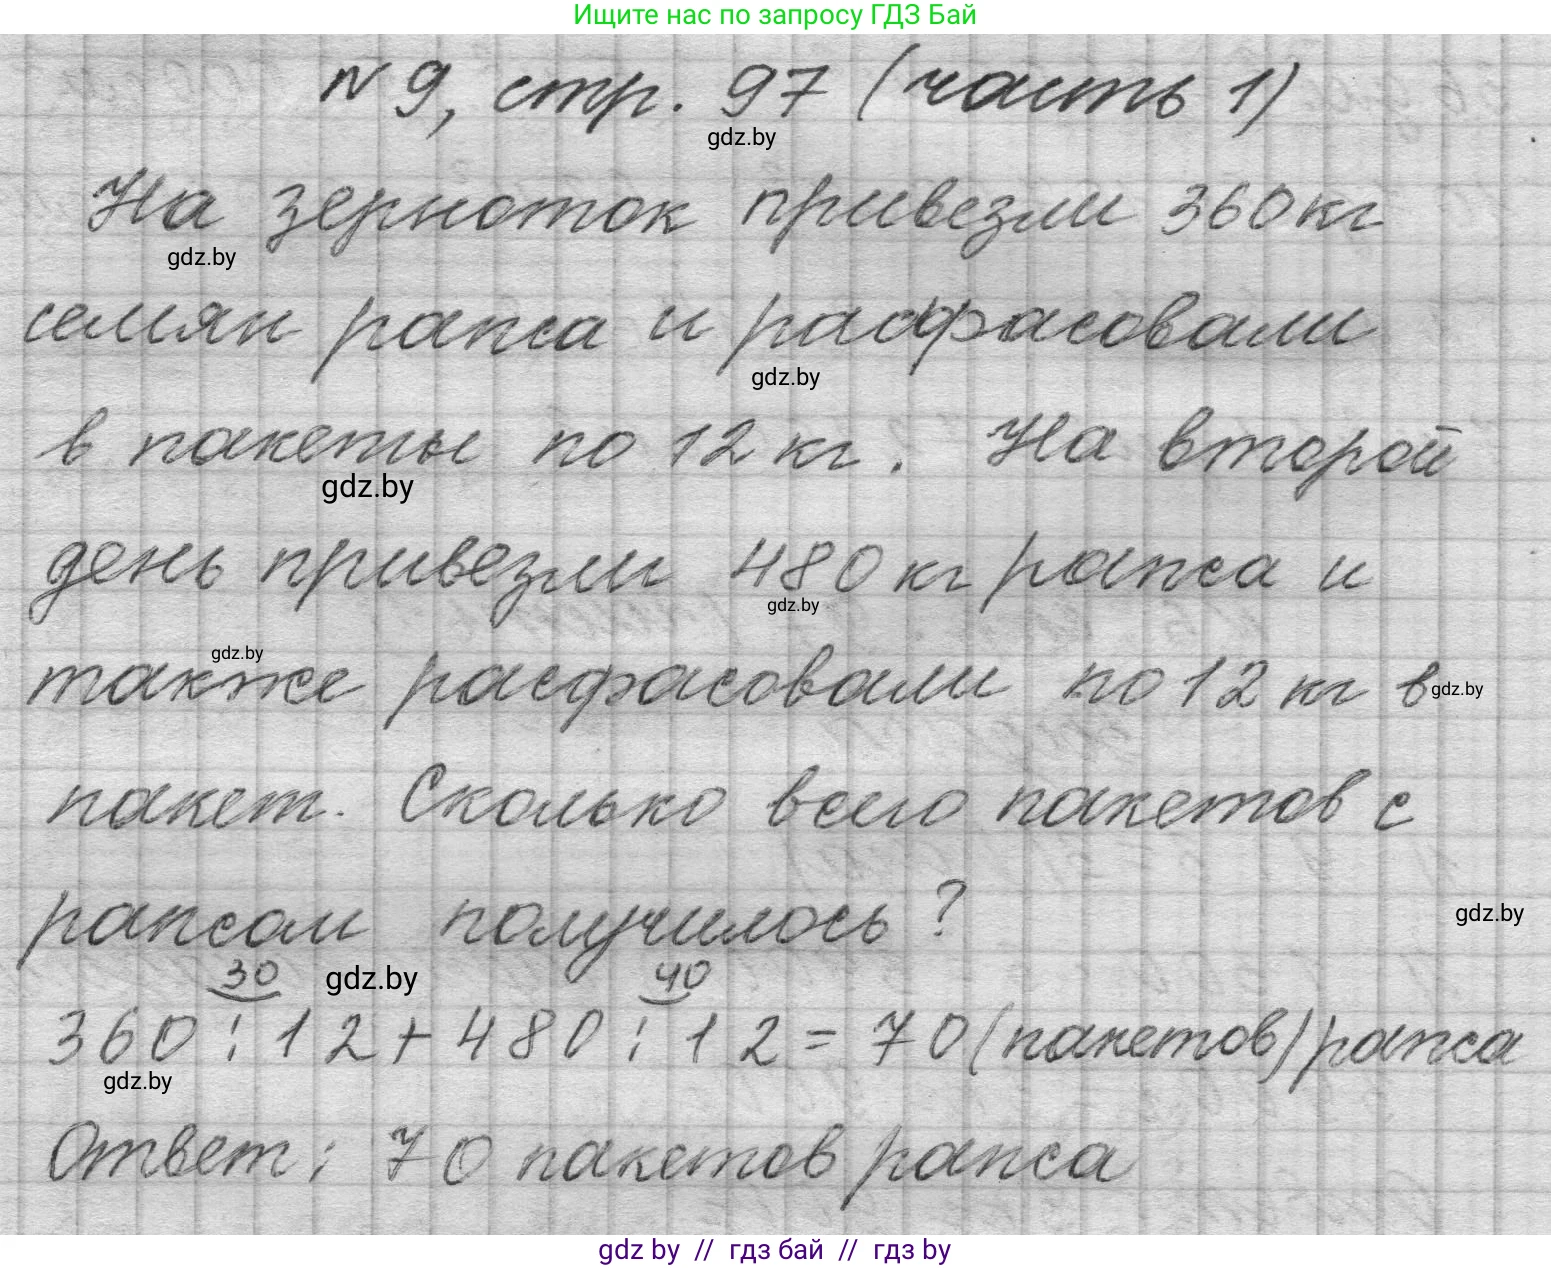 Ищите нас по запросу ГДЗ Бай
№ 9, стр. 97 (часть 1)
gdz.by
На зерноток привезли 360 кг
gdz.by
семян рапса и расфасовали
gdz.by
в пакеты по 12 кг. На второй
gdz.by
день привезли 480 кг рапса и
gdz.by
gdz.by
также расфасовали по 12 кг в
gdz.by
пакет. Сколько всего пакетов с
рапсом получилось?
gdz.by
30 40
gdz.by
360 : 12 + 480 : 12 = 70 (пакетов) рапса
gdz.by
Ответ: 70 пакетов рапса
gdz by // гдз бай // гдз by